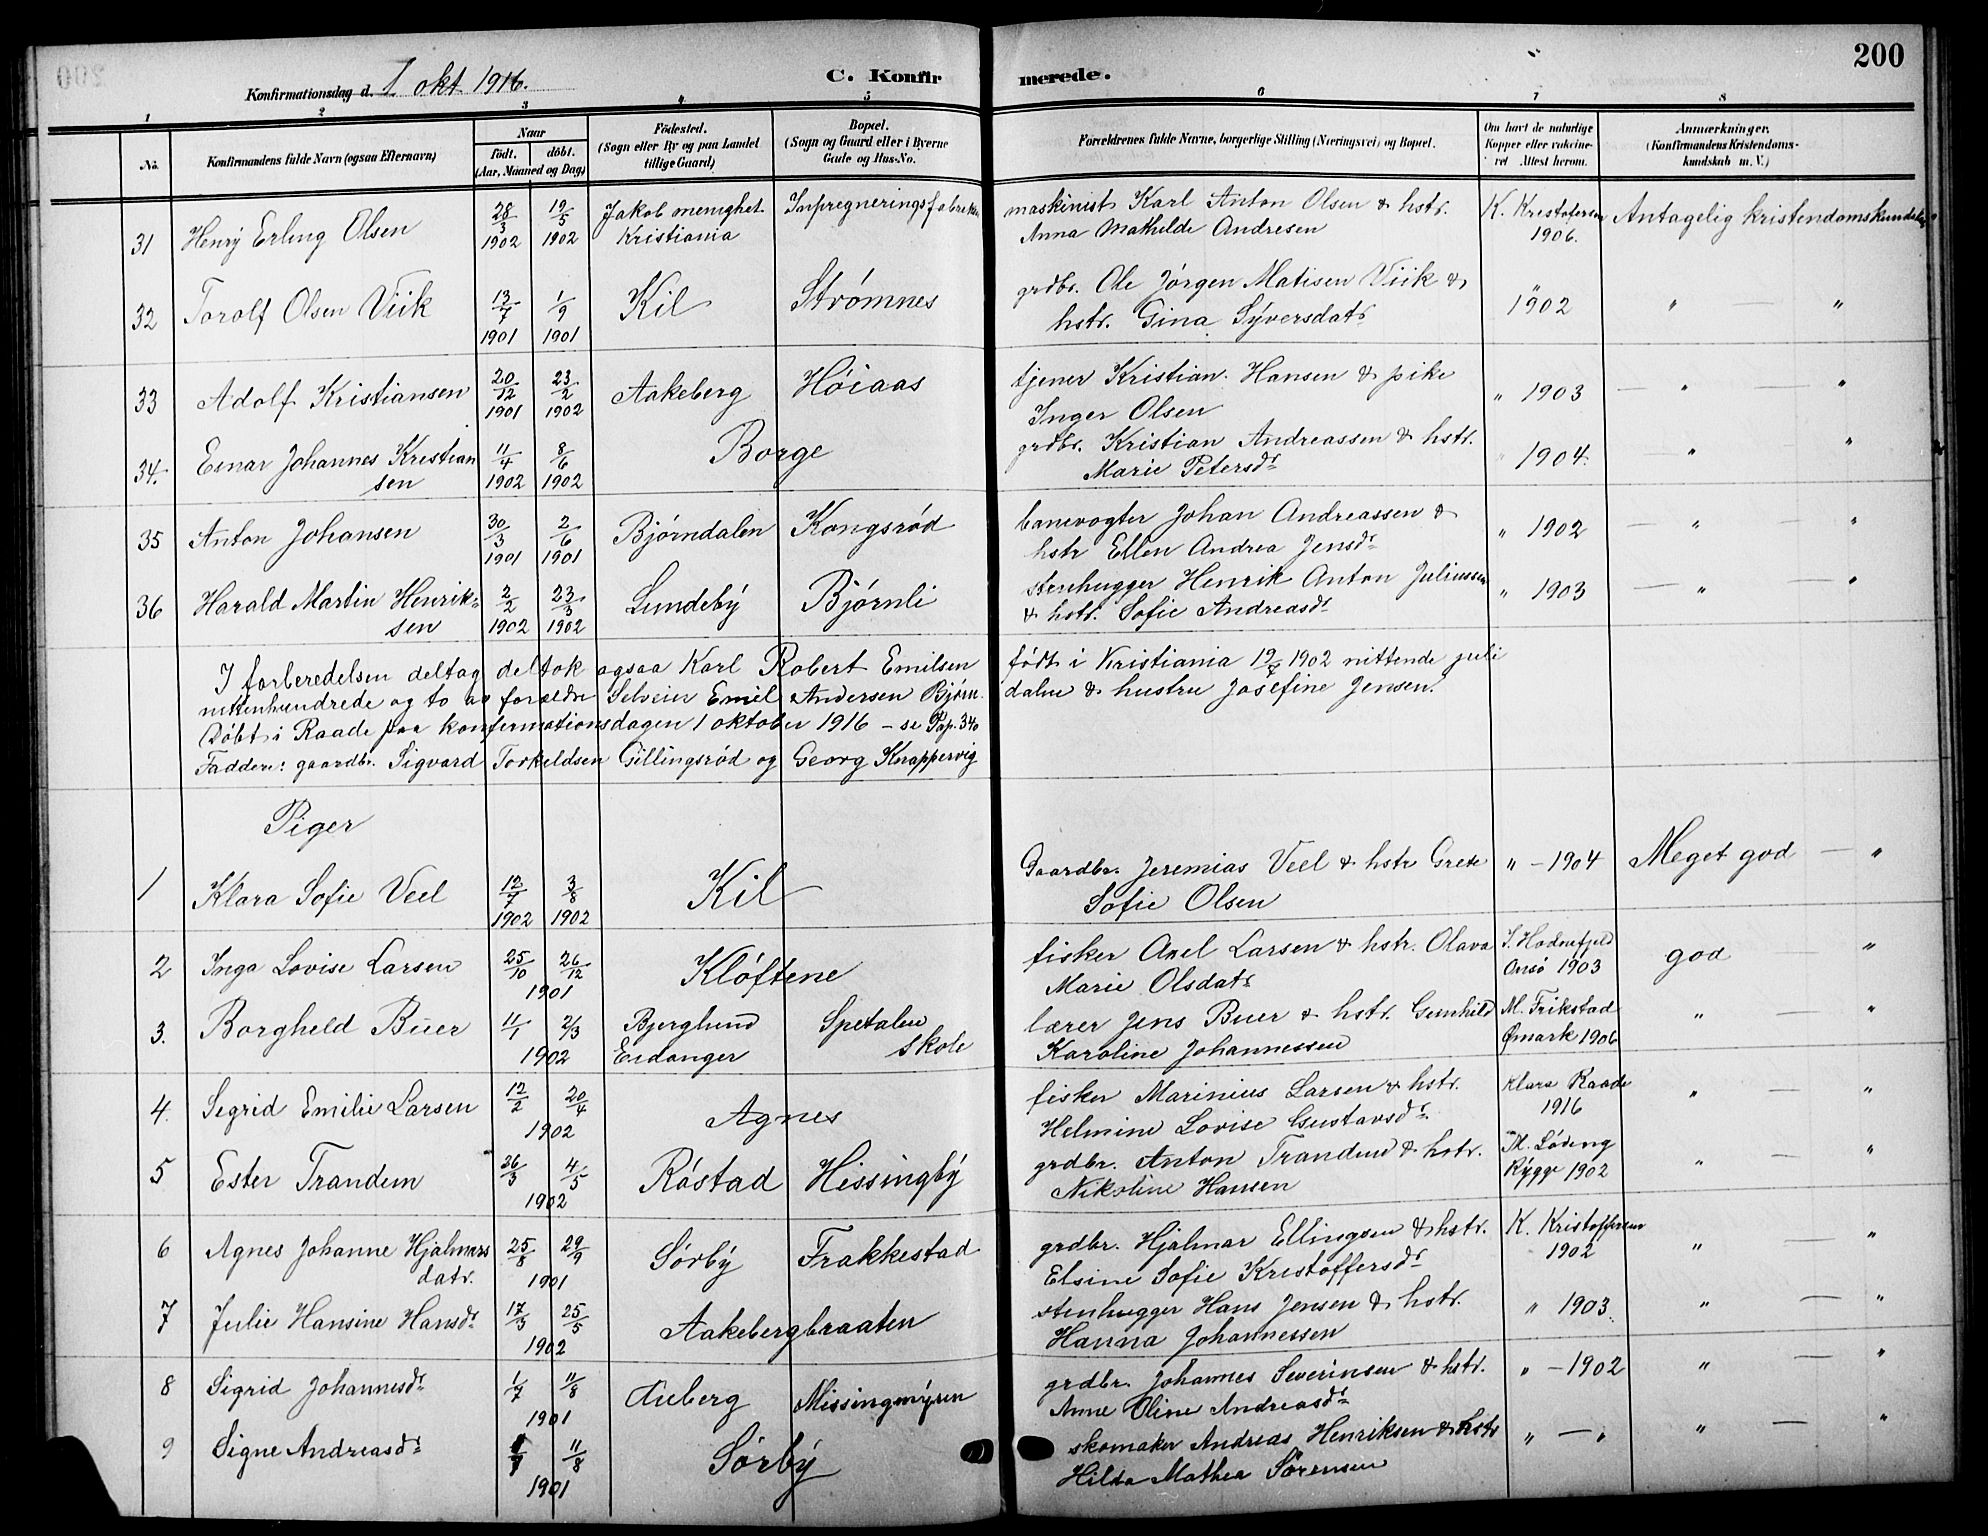 200
Konfirmationsdag d. 1 okt. 1916.
C. Konfirmerede.
1 2 3 4 5 6 7 8
No.
Konfirmandens fulde Navn (ogsaa Efternavn)
Naar
født. døbt.
(Aar, Maaned og Dag)
Fødested.
(Sogn eller By og paa Landet
tillige Gaard)
Bopæl.
(Sogn og Gaard eller i Byerne
Gade og Hus-No.
Forældrenes fulde Navne, borgerlige Stilling (Næringsvei) og Bopæl.
Om havt de naturlige
Kopper eller vakcine-
ret Attest herom.
Anmærkninger.
(Konfirmandens Kristendoms-
kundskab m. V.)
31 Henry Erling Olsen 28/3 1902 19/5 1902 Jakob menighet Kristiania Inpregneringsfabriken maskinist Karl Anton Olsen & hstr. K. Kristofersen Antagelig kristendomskundskab
Anna Mathilde Andresen 1906.
32 Torolf Olsen Viik 13/7 1901 1/9 1901 Kil Strømnes grdbr. Ole Jørgen Matisen Viik & " 1902 " — "
hstr. Gina Syversdatr
33 Adolf Kristiansen 20/12 1901 23/2 1902 Aakeberg Høiaas tjener Kristian Hansen & pike " 1903 — " — "
Inger Olsen
34. Einar Johannes Kristian 11/4 1902 8/6 1902 Borge grdbr. Kristian Andreassen & hstr. " 1904. " "
sen Marie Petersdr
35 Anton Johansen 30/3 1901 2/6 1901 Bjørndalen Kongsrød banevogter Johan Andreassen & " 1902 — " — "
hstr Ellen Andrea Jensdr
36 Harald Martin Henrik- 2/2 1902 23/3 1902 Lundeby Bjørnli stenhugger Henrik Anton Juliussen " 1903 — " — "
sen & hstr. Sofie Andreasdr
I forberedelsen deltog deltok ogsaa Karl Robert Emilsen født i Kristiania 19/7 1902 nittende juli
nittenhundrede og to av forældre Selveier Emil Andersen Bjørn- dalen & hustru Josefine Jensen.
Døbt i Raade paa konfirmationsdagen 1 oktober 1916 – se Pag. 340
Faddere: gaardbr. Sigvard Torkeldsen Gillingsrød og Georg Knappervig
Piger
1 Klara Sofie Veel 12/7 1902 3/8 1902 Kil Gaardbr. Jeremias Veel & hstr Grete " – 1904 Meget god — "
Sofie Olsen
2 Inga Lovise Larsen 25/10 26/12 1901 Kløftene fisker Axel Larsen & hstr. Olava S. Hodnefjeld god — "
Marie Olsdatr Onsø 1903
3. Borgheld Buer 11/1 2/3 1902 Bjerglund Eidanger Spetalen skole lærer Jens Buer & hstr. Gunhild M. Frikstad " — "
Karoline Johannessen Ømark 1906
4. Segrid Emilie Larsen 12/2 20/4 1902 Agnes fisker Marinius Larsen & hstr. Klara Raade " — "
Helmine Lovise Gustavsdr 1916
5 Ester Trandem 26/3 4/5 1902 Røstad Hissingby grdbr. Anton Trandem & hstr. Løding " — "
Nikoline Hansen Rygge 1902
6 Agnes Johanne Hjalmars 25/8 29/9 1901 Sørby Frakkestad grdbr. Hjalmar Ellingsen & hstr. K. Kristoffersen " — "
datr. Elsine Sofie Kristoffersdr 1902
7 Julie Hansine Hansdr 17/3 25/5 1902 Aakebergbraaten stenhugger Hans Jensen & hstr. " 1903. " — "
Hanna Johannessen
8 Sigrid Johannesdr 1/7 11/8 1901 Missingmyren grdbr. Johannes Severinsen & hstr. " – 1902 " — "
Anne Oline Andreasdr
9 Signe Andreasdr 11/8 1901 Sørby skomaker Andreas Henriksen & hstr " — " " — "
Hilda Mathea Sørensen